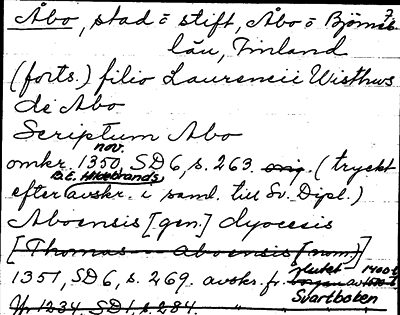 7
Åbo, stad = stift, Åbo = Björneb.
län, Finland
(forts.) filio Laurencii Wisthws
de Abo
Scriptum Abo
nov.
omkr. 1350, SD 6, s. 263. orig. (tryckt
B.E. Hildebrands
efter avskr. i saml. till Sv. Dipl.)
Aboensis [gen.] dyocesis
[Thomas aboensis (nom)]
slutet 1400 t
1351, SD 6, s. 269. avskr. fr. av
Svartboken
Yr 1234, SD 1, s. 284.